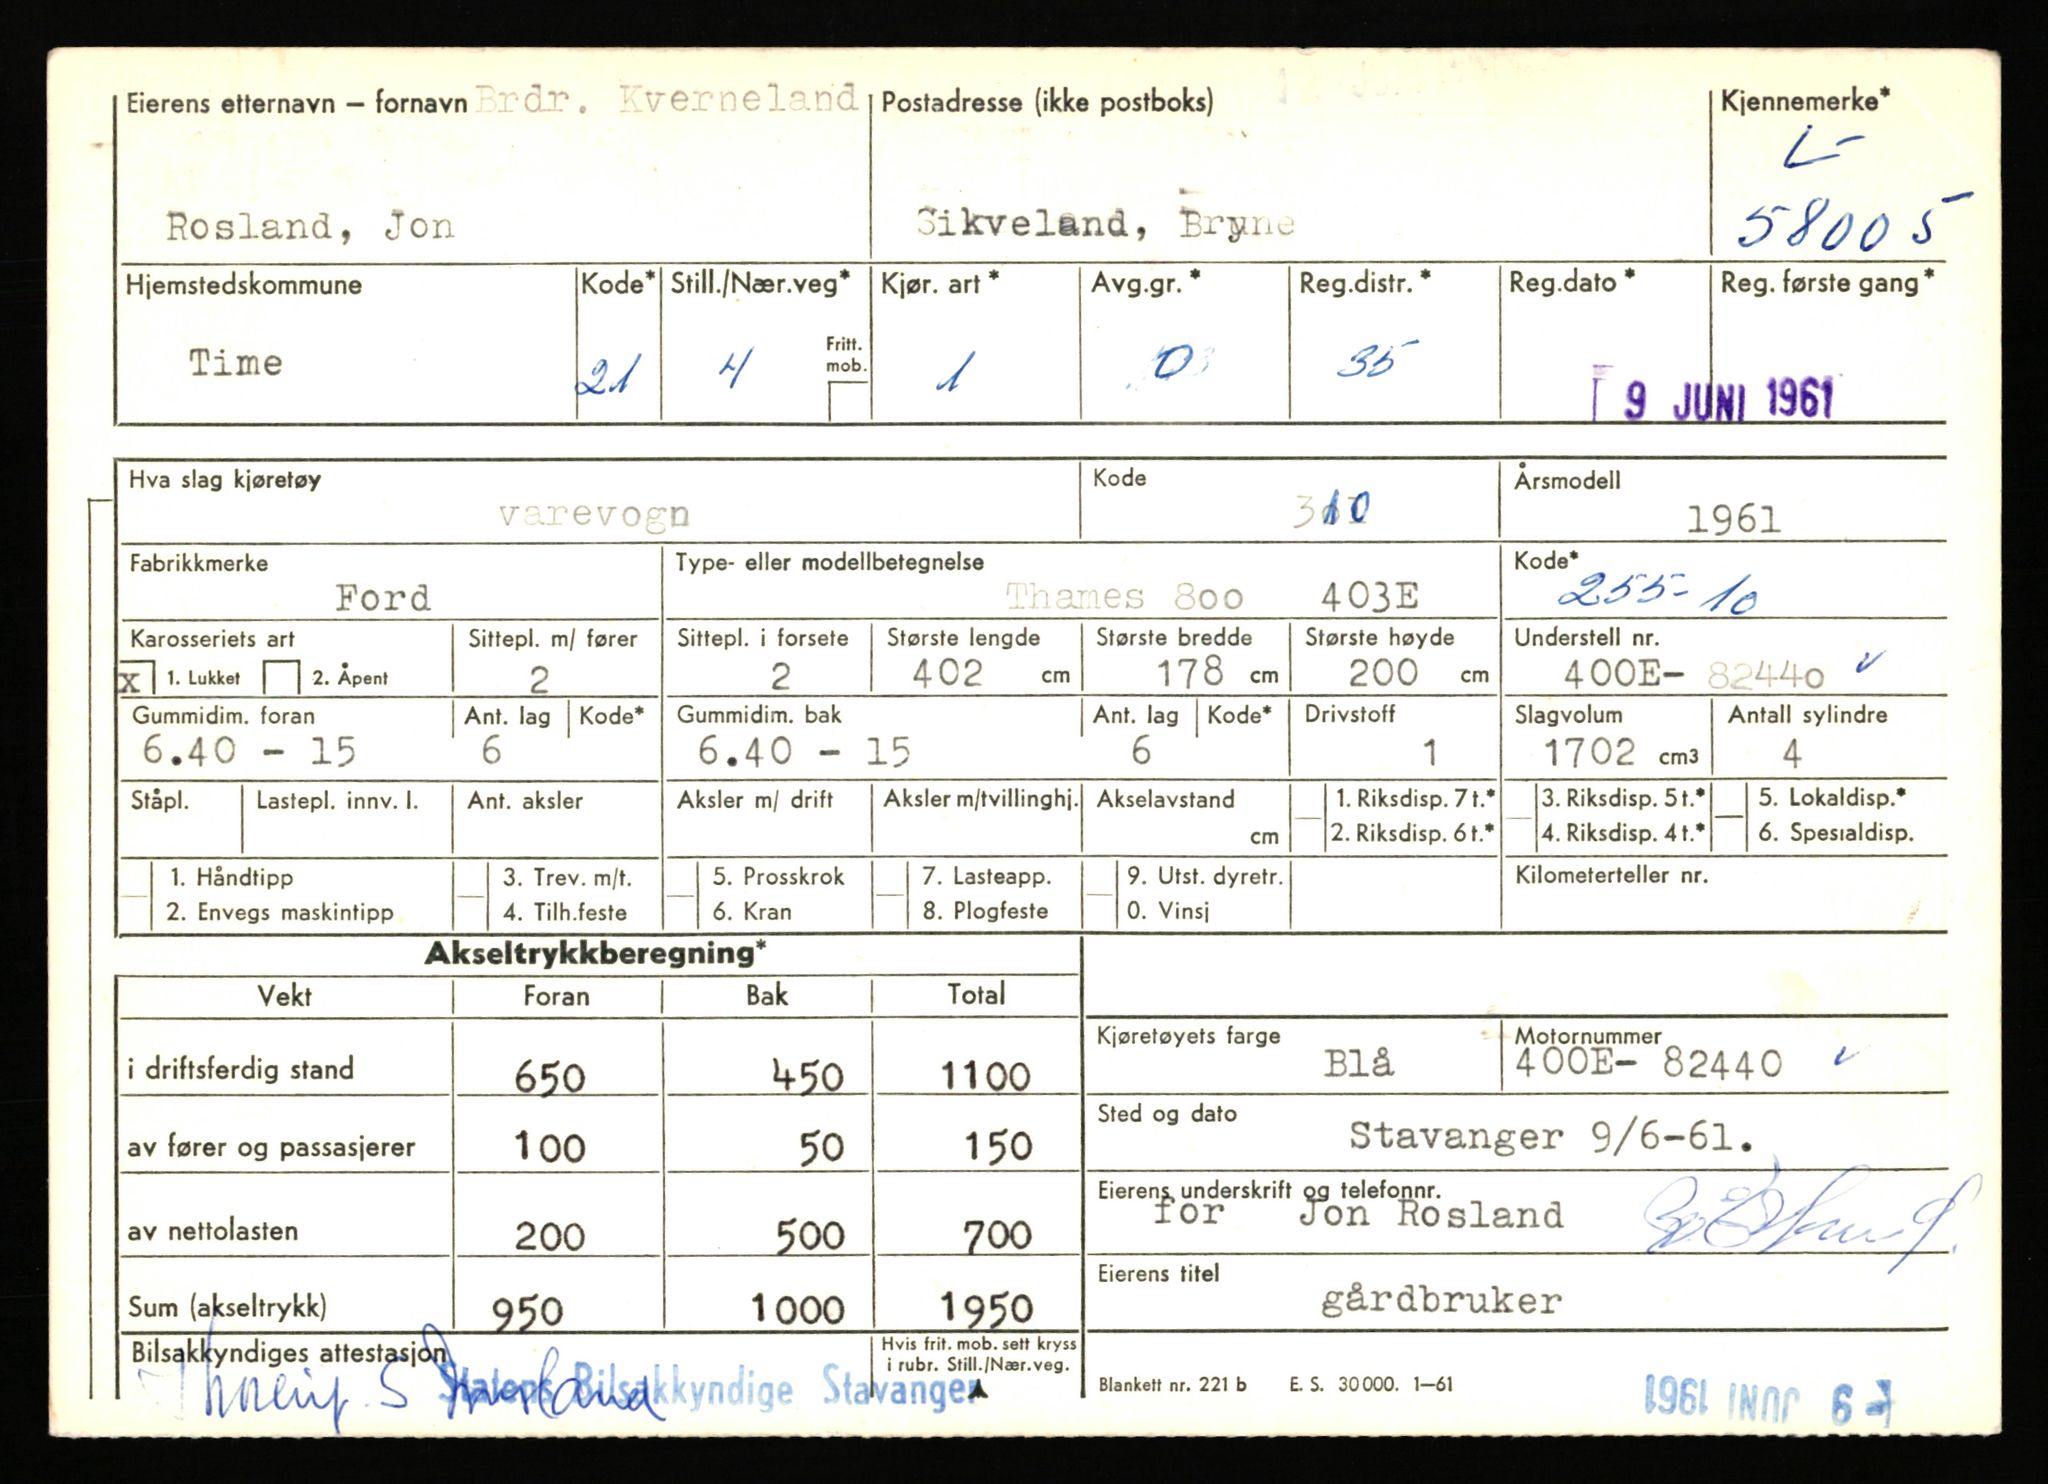 Eierens etternavn – fornavn Brdr. Kverneland Postadresse (ikke postboks) Kjennemerke*
L-
Rosland, Jon Sikveland, Bryne 58005
Hjemstedskommune Kode* Still./Nær.veg* Kjør. art* Avg.gr.* Reg.distr.* Reg.dato* Reg. første gang*
Time 21 4 Fritt. mob. 1 35
9 JUNI 1961
Hva slag kjøretøy Kode Årsmodell
varevogn 310 1961
Fabrikkmerke Type- eller modellbetegnelse Kode*
Ford Thames 800 403E 255-10
Karosseriets art Sittepl. m/ fører Sittepl. i forsete Største lengde Største bredde Største høyde Understell nr.
x 1. Lukket 2. Åpent 2 2 402 cm 178 cm 200 cm 400E- 82440
Gummidim. foran Ant. lag Kode* Gummidim. bak Ant. lag Kode* Drivstoff Slagvolum Antall sylindre
6.40 - 15 6 6.40 - 15 6 1 1702 cm3 4
Ståpl. Lastepl. innv. l. Ant. aksler Aksler m/ drift Aksler m/tvillinghj. Akselavstand cm 1. Riksdisp. 7 t.* 3. Riksdisp. 5 t.* 5. Lokaldisp.*
2. Riksdisp. 6 t.* 4. Riksdisp. 4 t.* 6. Spesialdisp.
1. Håndtipp 3. Trev. m/t. 5. Prosskrok 7. Lasteapp. 9. Utst. dyretr. Kilometerteller nr.
2. Envegs maskintipp 4. Tilh.feste 6. Kran 8. Plogfeste 0. Vinsj
Akseltrykkberegning*
Vekt Foran Bak Total
i driftsferdig stand 650 450 1100
av fører og passasjerer 100 50 150
av nettolasten 200 500 700
Sum (akseltrykk) 950 1000 1950
Kjøretøyets farge Motornummer
Blå 400E- 82440
Sted og dato
Stavanger 9/6-61.
Eierens underskrift og telefonnr.
for Jon Rosland
Eierens titel
gårdbruker
Bilsakkyndiges attestasjon Hvis frit. mob. sett kryss
i rubr. Still./Nær.veg.
Statens Bilsakkyndige Stavanger
Blankett nr. 221 b E. S. 30000. 1–61
- 9 JUNI 1961